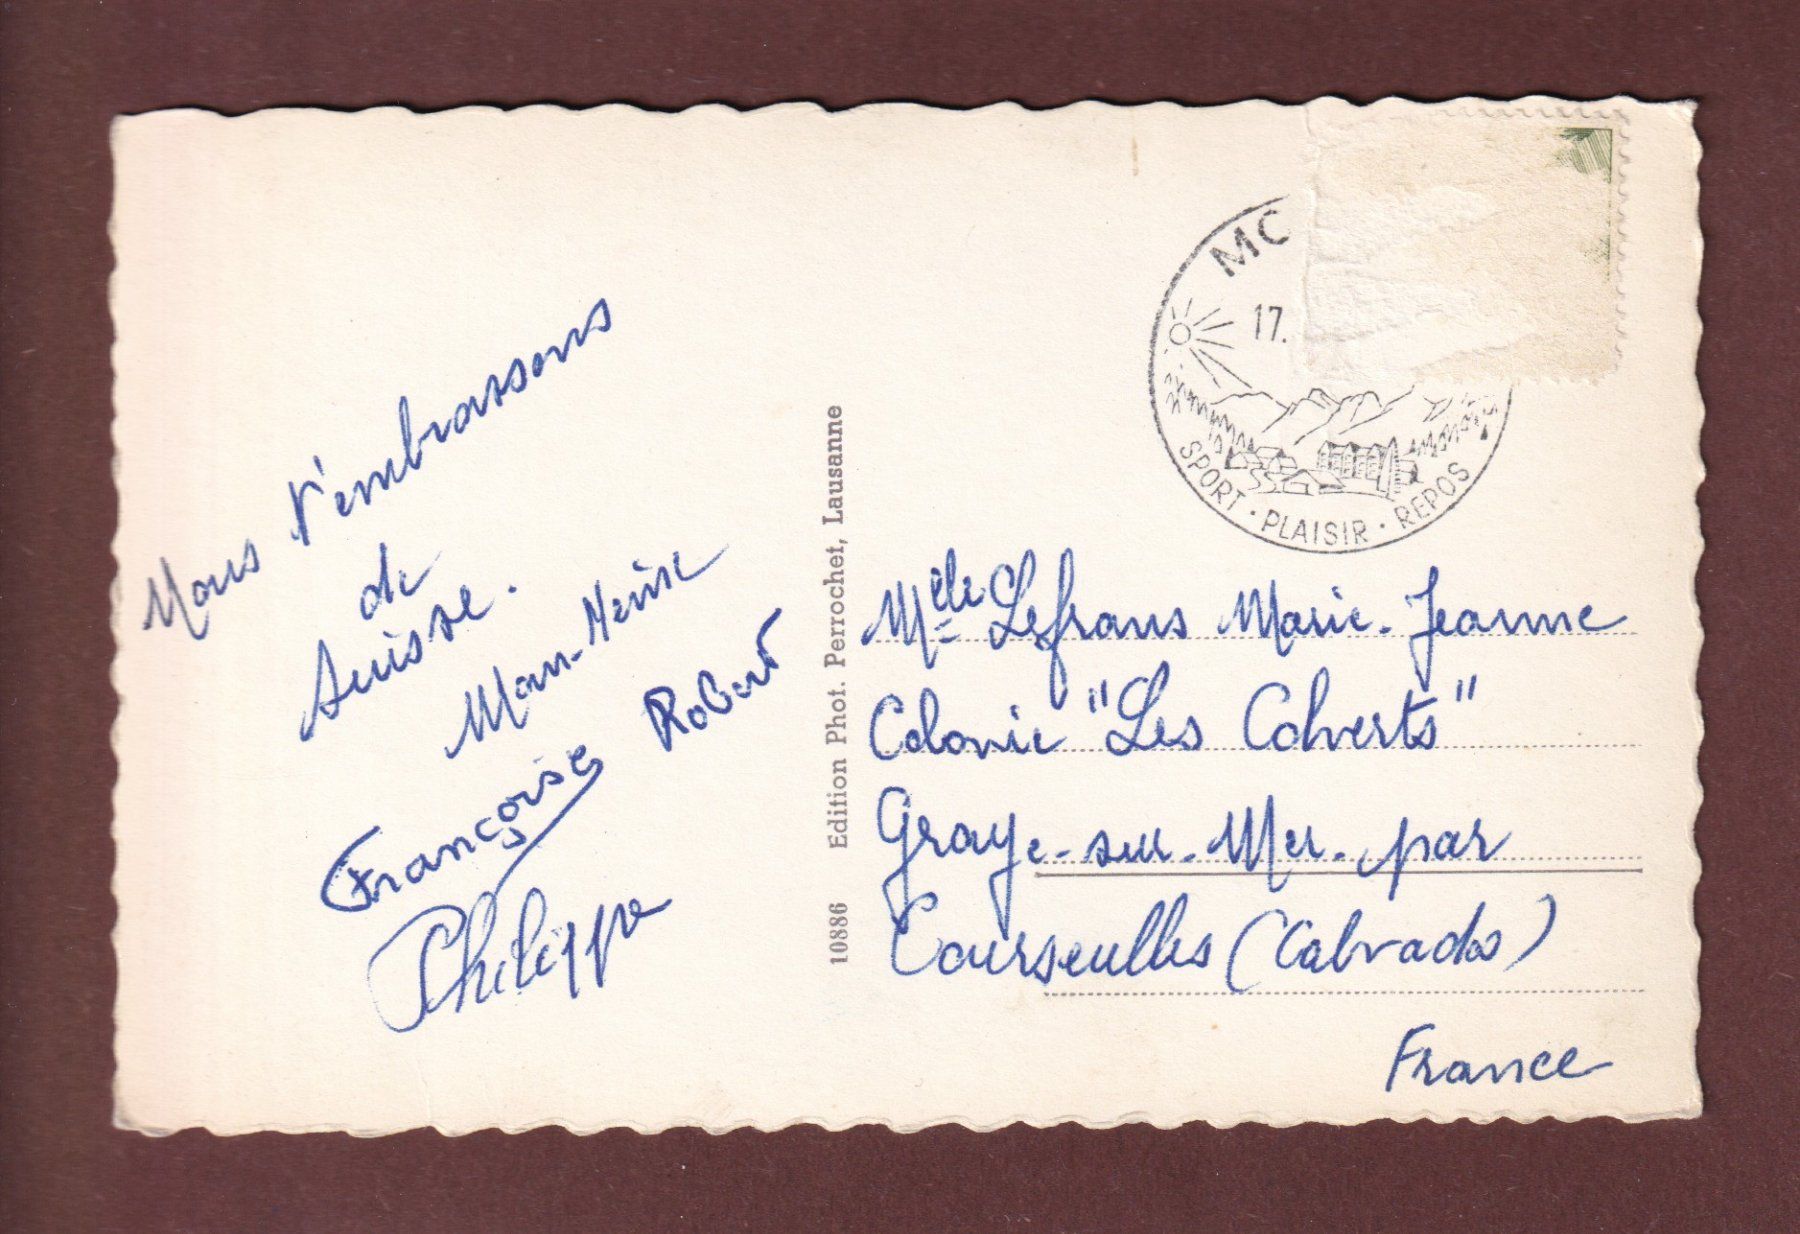 Nous t'embrassons
de
Suisse.
Robert
Françoise
Philippe
10886 Edition Phot. Perrochet, Lausanne
MO
17.
SPORT · PLAISIR · REPOS
Melle Lefrans Marie-Jeanne
Colonie "Les Colverts"
Graye-sur-Mer par
Courseulles (Calvados)
France